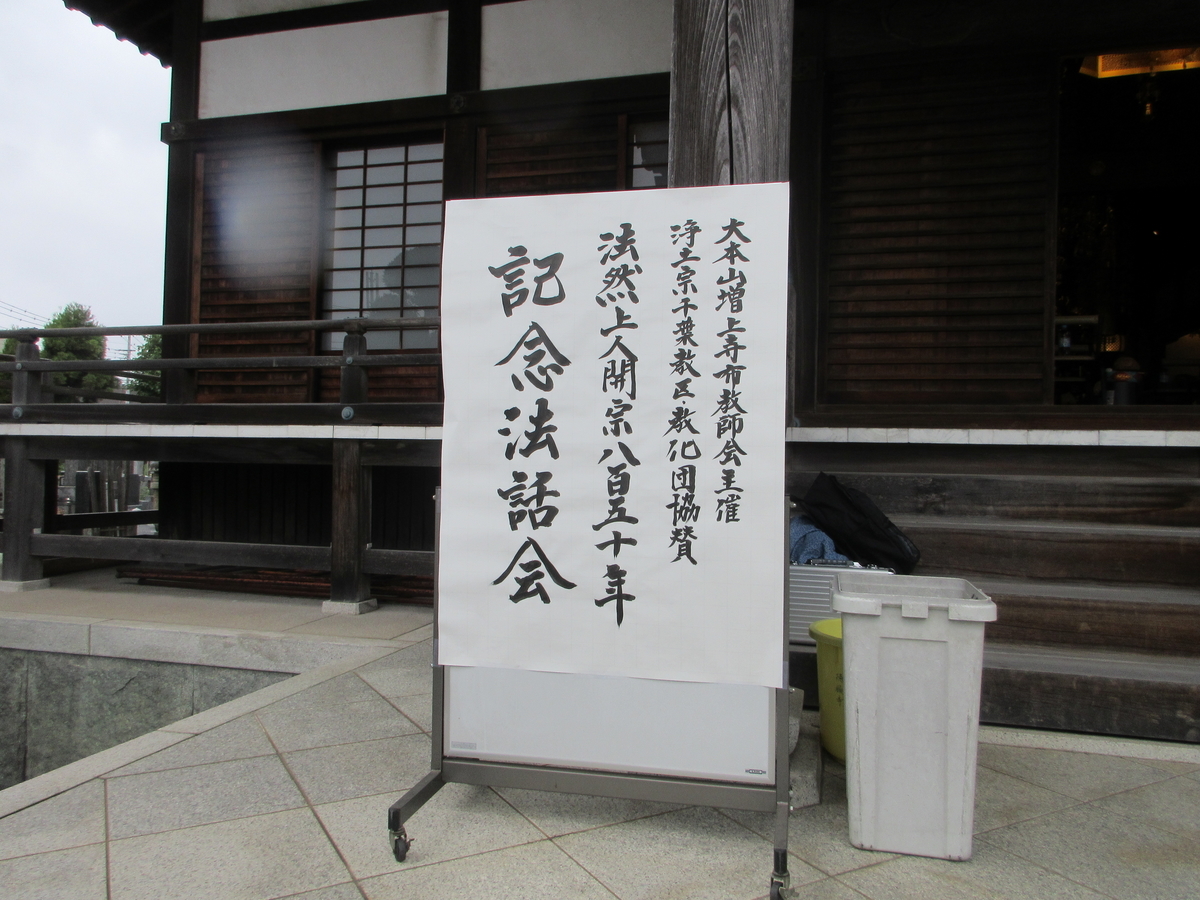 大本山増上寺布教師会主催
浄土宗千葉教区・教化団協賛
法然上人開宗八百五十年
記念法話会